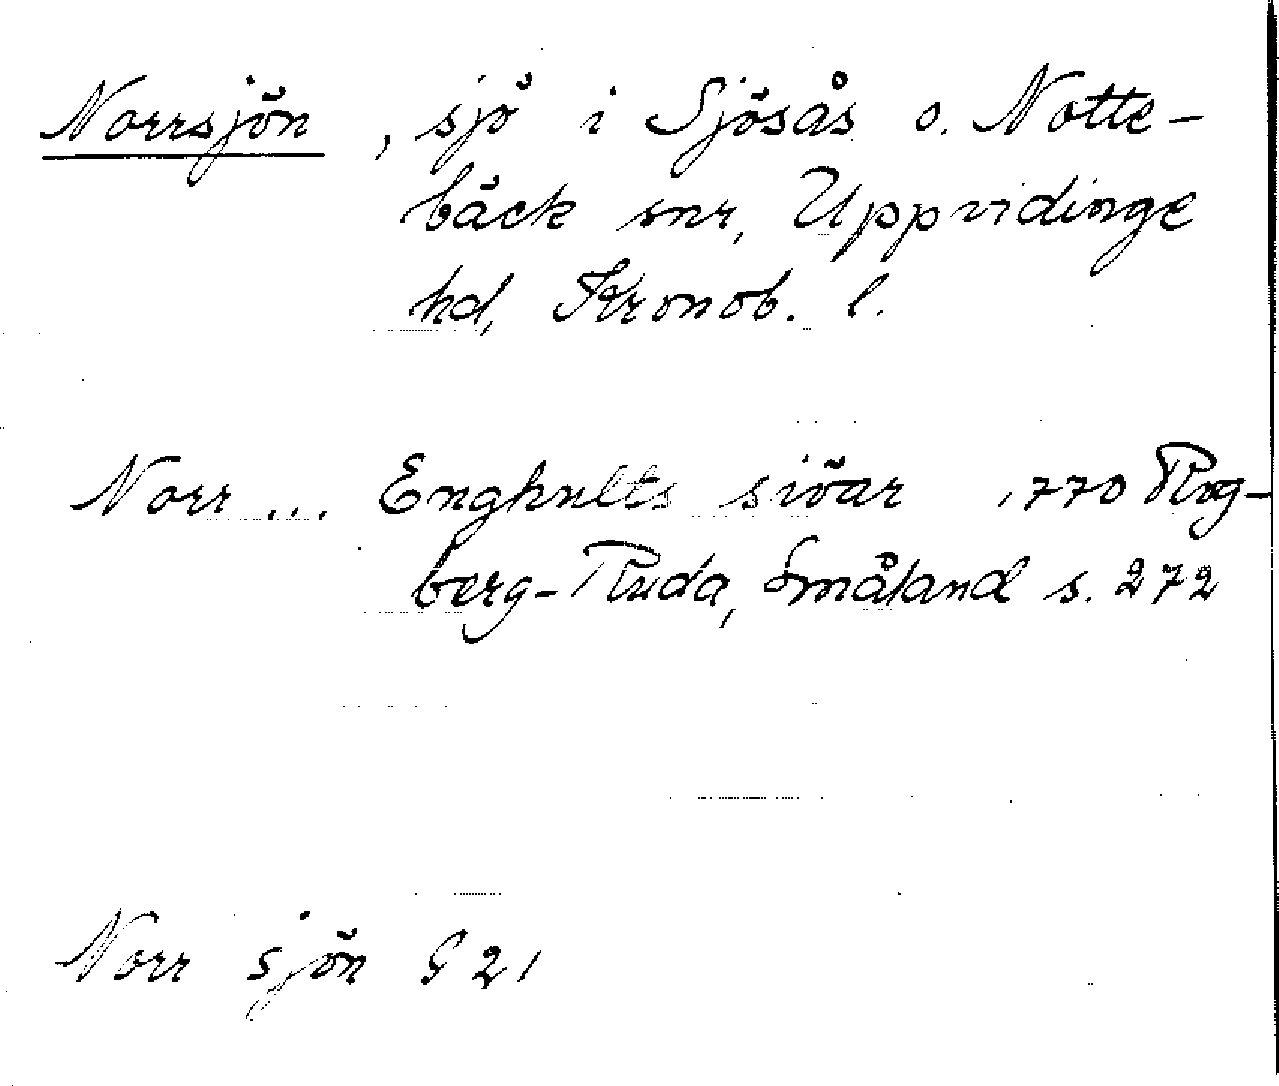 Norrsjön, sjö i Sjösås o. Notte-
bäck snr, Uppvidinge
hd, Kronob. l.
Norr ... Enghults siöar 1770 Rog-
berg-Ruda, Småland s. 272
Norr sjön G 21